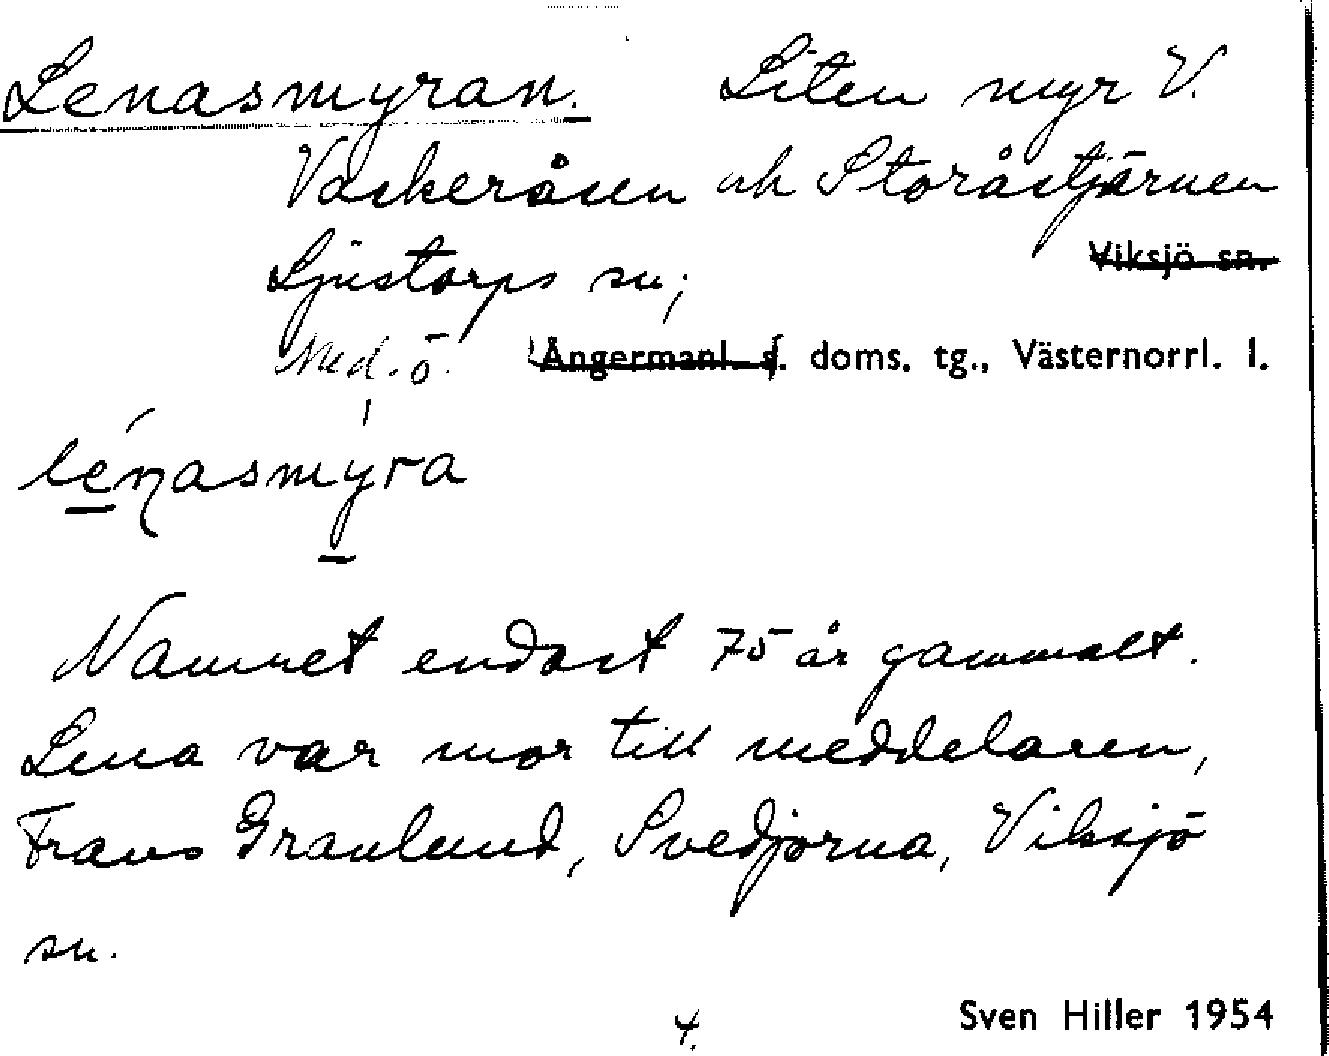 Lenasmyran. Liten myr V.
Vaskeråsen och Storåstjärnen
Ljustorps sn; Viksjö sn.
Med. ö. Ångermanl. s. doms. tg., Västernorrl. l.
lénasmyra
Namnet endast 75 år gammalt.
Lena var mor till meddelaren,
Frans Granlund, Svedjorna, Viksjö
sn.
4. Sven Hiller 1954